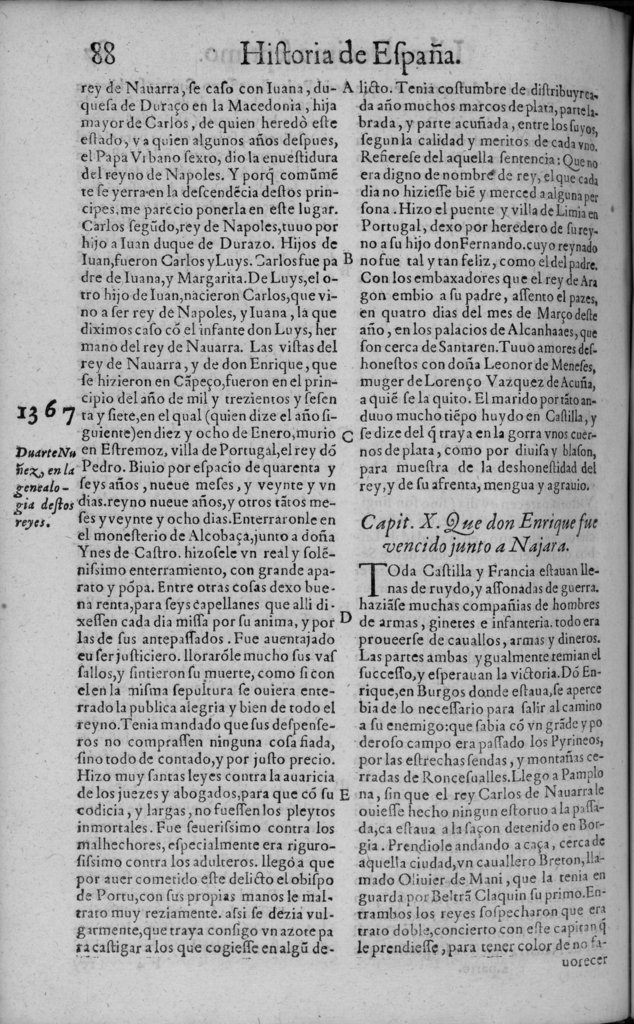 88 Hiſtoria de Eſpaña.
rey de Nauarra, ſe caſo con Iuana, du-
queſa de Duraço en la Macedonia, hija
mayor de Carlos, de quien heredò eſte
eſtado, y a quien algunos años deſpues,
el Papa Vrbano ſexto, dio la enueſtidura
del reyno de Napoles. Y porq̃ comũmẽ
te ſe yerra en la deſcendẽcia deſtos prin-
cipes, me parecio ponerla en eſte lugar.
Carlos ſegũdo, rey de Napoles, tuuo por
hijo a Iuan duque de Durazo. Hijos de
Iuan, fueron Carlos y Luys. Carlos fue pa
dre de Iuana, y Margarita. De Luys, el o-
tro hijo de Iuan, nacieron Carlos, que vi-
no a ſer rey de Napoles, y Iuana, la que
diximos caſo cõ el infante don Luys, her
mano del rey de Nauarra. Las viſtas del
rey de Nauarra, y de don Enrique, que
ſe hizieron en Cãpeço, fueron en el prin-
cipio del año de mil y trezientos y ſeſen
ta y ſiete, en el qual (quien dize el año ſi-
guiente) en diez y ocho de Enero, murio
en Eſtremoz, villa de Portugal, el rey dõ
Pedro. Biuio por eſpacio de quarenta y
ſeys años, nueue meſes, y veynte y vn
dias. reyno nueue años, y otros tãtos me-
ſes y veynte y ocho dias. Enterraronle en
el moneſterio de Alcobaça, junto a doña
Ynes de Caſtro. hizoſele vn real y ſolẽ-
niſsimo enterramiento, con grande apa-
rato y põpa. Entre otras coſas dexo bue-
na renta, para ſeys capellanes que alli di-
xeſſen cada dia miſſa por ſu anima, y por
las de ſus antepaſſados. Fue auentajado
eu ſer juſticiero. lloraróle mucho ſus vaſ
ſallos, y ſintieron ſu muerte, como ſi con
el en la miſma ſepultura ſe ouiera ente-
rrado la publica alegria y bien de todo el
reyno. Tenia mandado que ſus deſpenſe-
ros no compraſſen ninguna coſa fiada,
ſino todo de contado, y por juſto precio.
Hizo muy ſantas leyes contra la auaricia
de los juezes y abogados, para que cõ ſu
codicia, y largas, no fueſſen los pleytos
inmortales. Fue ſeueriſsimo contra los
malhechores, eſpecialmente era riguro-
ſiſsimo contra los adulteros. llegò a que
por auer cometido eſte delicto el obiſpo
de Portu, con ſus propias manos le mal-
trato muy reziamente. aſsi ſe dezia vul-
garmente, que traya conſigo vn azote pa
ra caſtigar a los que cogieſſe en algũ de-
1367
Duarte Nu
ñez, en la
genealo-
gia deſtos
reyes.
A
B
C
D
E
licto. Tenia coſtumbre de diſtribuyr ca-
da año muchos marcos de plata, parte la-
brada, y parte acuñada, entre los ſuyos,
ſegun la calidad y meritos de cada vno.
Refiereſe del aquella ſentencia: Que no
era digno de nombre de rey, el que cada
dia no hizieſſe biẽ y merced a alguna per
ſona. Hizo el puente y villa de Limia en
Portugal, dexo por heredero de ſu rey-
no a ſu hijo don Fernando. cuyo reynado
no fue tal y tan feliz, como el del padre.
Con los embaxadores que el rey de Ara
gon embio a ſu padre, aſſento el pazes,
en quatro dias del mes de Março deſte
año, en los palacios de Alcanhaaes, que
ſon cerca de Santaren. Tuuo amores deſ-
honeſtos con doña Leonor de Meneſes,
muger de Lorenço Vazquez de Acuña,
a quiẽ ſe la quito. El marido por tãto an-
duuo mucho tiẽpo huydo en Caſtilla, y
ſe dize del q̃ traya en la gorra vnos cuer-
nos de plata, como por diuiſa y blaſon,
para mueſtra de la deshoneſtidad del
rey, y de ſu afrenta, mengua y agrauio.
Capit. X. Que don Enrique fue
vencido junto a Najara.
TOda Caſtilla y Francia eſtauan lle-
nas de ruydo, y aſſonadas de guerra.
haziãſe muchas compañias de hombres
de armas, ginetes e infanteria. todo era
proueerſe de cauallos, armas y dineros.
Las partes ambas ygualmente temian el
ſucceſſo, y eſperauan la victoria. Dõ En-
rique, en Burgos donde eſtaua, ſe aperce
bia de lo neceſſario para ſalir al camino
a ſu enemigo: que ſabia cõ vn grãde y po
deroſo campo era paſſado los Pyrineos,
por las eſtrechas ſendas, y montañas ce-
rradas de Ronceſualles. Llego a Pamplo
na, ſin que el rey Carlos de Nauarra le
ouieſſe hecho ningun eſtoruo a la paſſa-
da, ca eſtaua a la ſaçon detenido en Bor-
gia. Prendiole andando a caça, cerca de
aquella ciudad, vn cauallero Breton, lla-
mado Oliuier de Mani, que la tenia en
guarda por Beltrã Claquin ſu primo. En-
trambos los reyes ſoſpecharon que era
trato doble, concierto con eſte capitan q̃
le prendieſſe, para tener color de no fa-
uorecer